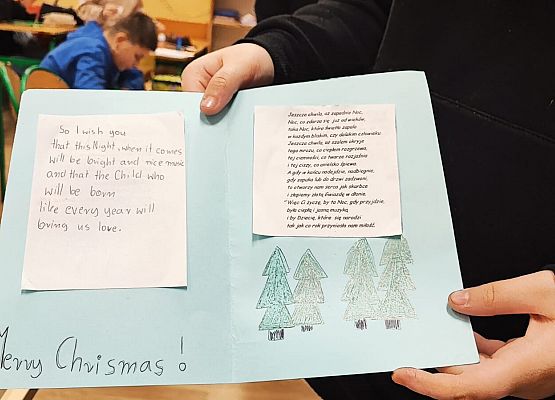 So I wish you
that this Night, when it comes
will be bright and nice music
and that the Child who
will be born
like every year will
bring us love.
Merry Chrismas!
Jeszcze chwila, aż zapadnie Noc,
Noc, co zdarza się już od wieków,
taka Noc, która światło zapala
w każdym bliskim, czy dalekim człowieku.
Jeszcze chwila, aż szalem okryje
tego mrozu, co ciepłem rozgrzewa,
tej ciemności, co twarze rozjaśnia
i tej ciszy, co anielsko śpiewa.
A gdy w końcu nadejdzie, nadbiegnie,
gdy zapuka lub do drzwi zadzwoni,
to otworzy nam serca jak skarbce
i złapiemy złotą Gwiazdę w dłonie.
Więc Ci życzę, by ta Noc, gdy przyjdzie,
była ciepłą i jasną muzyką
i by Dziecię, które się narodzi
tak jak co rok przyniosło nam miłość.